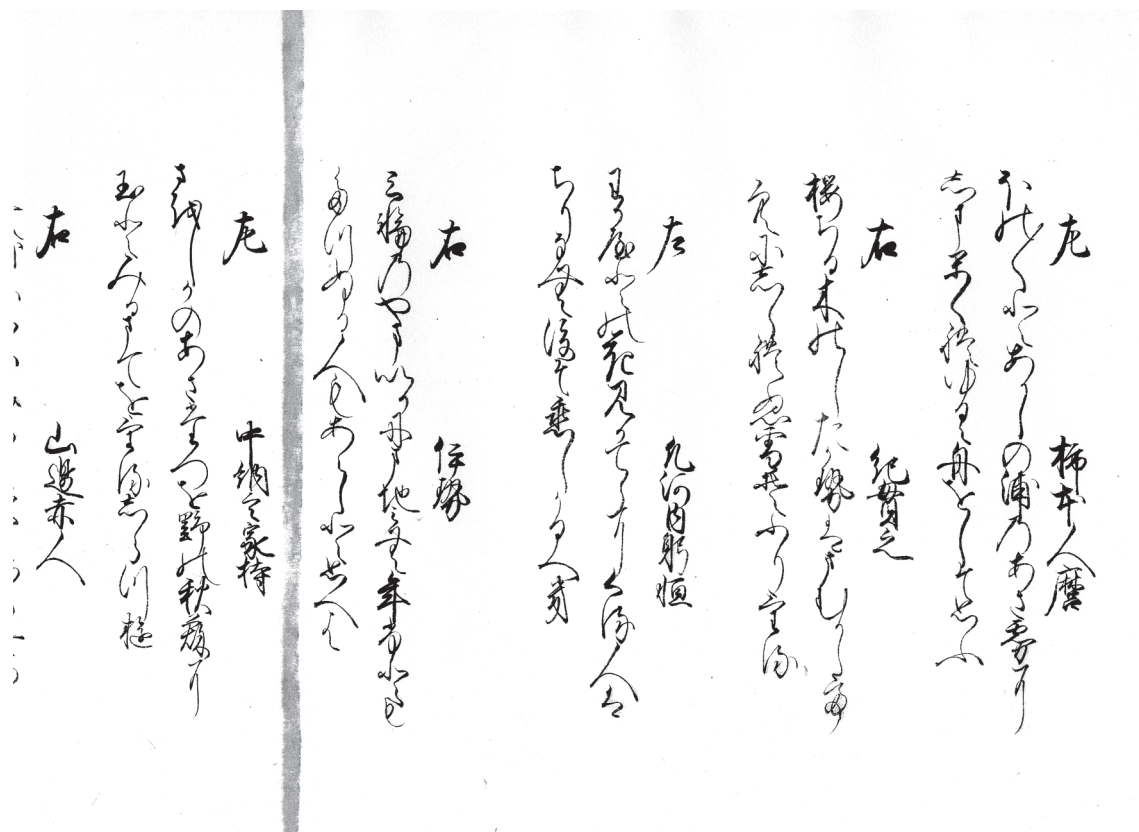 左　柿本人麿
ほの〳〵とあかしの浦のあさ霧に
しまかくれゆく舟をしそ思ふ
右　紀貫之
桜ちる木のした風はさむからて
空にしられぬ雪そふりける
左　凡河内躬恒
わか屋との花見かてらにくる人は
ちりなむ後そ恋しかるへき
右　伊勢
三輪のやまいかにまち見む年ふとも
たつぬる人もあらしと思へは
左　中納言家持
さをしかのあさたつを野の秋萩に
玉とみるまてをけるしらつゆ
右　山邊赤人